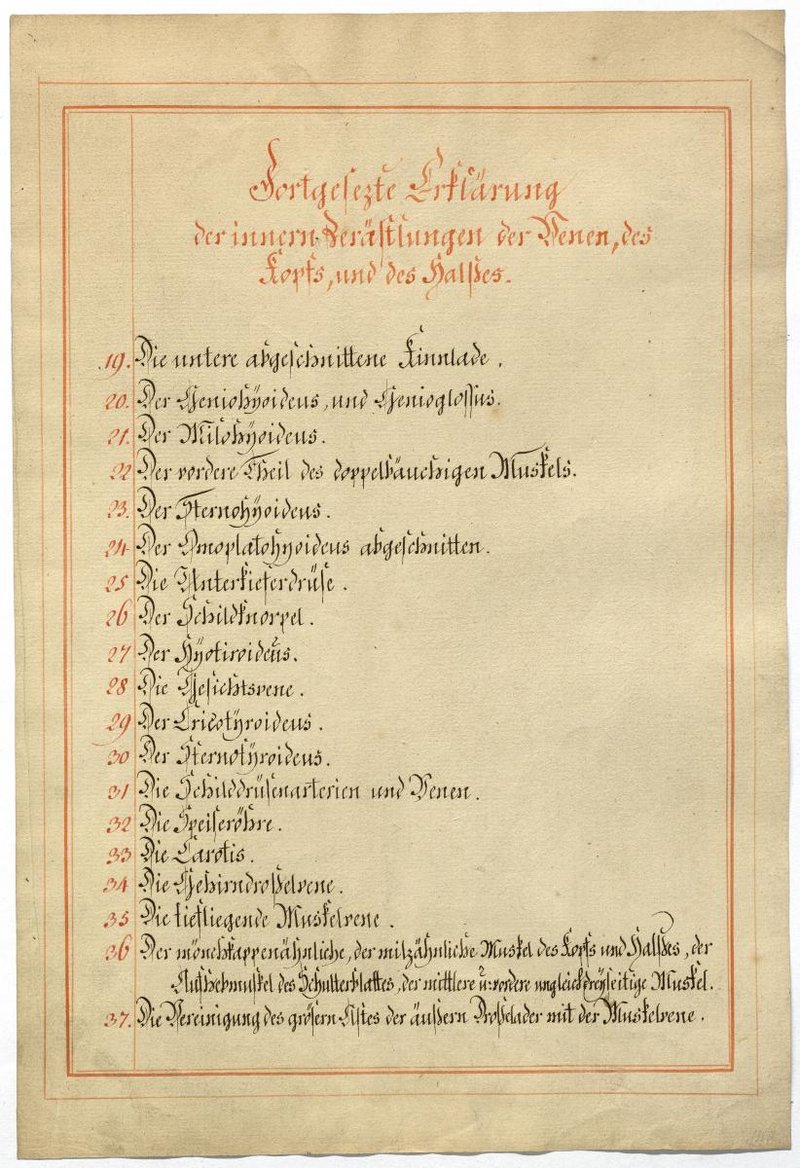 Fortgesezte Erklärung
der innern Verästlungen der Venen, des
Kopfs, und des Halßes.
19. Die untere abgeschnittene Kinnlade.
20. Der Geniohÿoideus, und Genioglossus.
21. Der Milohÿoideus.
22 Der vordere Theil des doppelbäuchigen Muskels.
23. Der Sternohÿoideus.
24 Der Omoplatohÿoideus abgeschnitten.
25 Die Unterkieferdrüse.
26 Der Schildknorpel.
27 Der Hyotiroideus.
28 Die Gesichtsvene.
29 Der Cricotÿroideus.
30 Der Sternotÿroideus.
31 Die Schilddrüsenarterien und Venen.
32 Die Speiseröhre.
33 Die Carotis.
34 Die Gehirndroßelvene.
35 Die tiefliegende Muskelvene.
36 Der mönchkappenähnliche, der milzähnliche Muskel des Kopfs und Halßes, der
Aufhebmuskel des Schulterblattes, der mittlere u. vordere ungleichdreyseitige Muskel.
37. Die Vereinigung des grösern Astes der äußern Droßelader mit der Muskelvene.